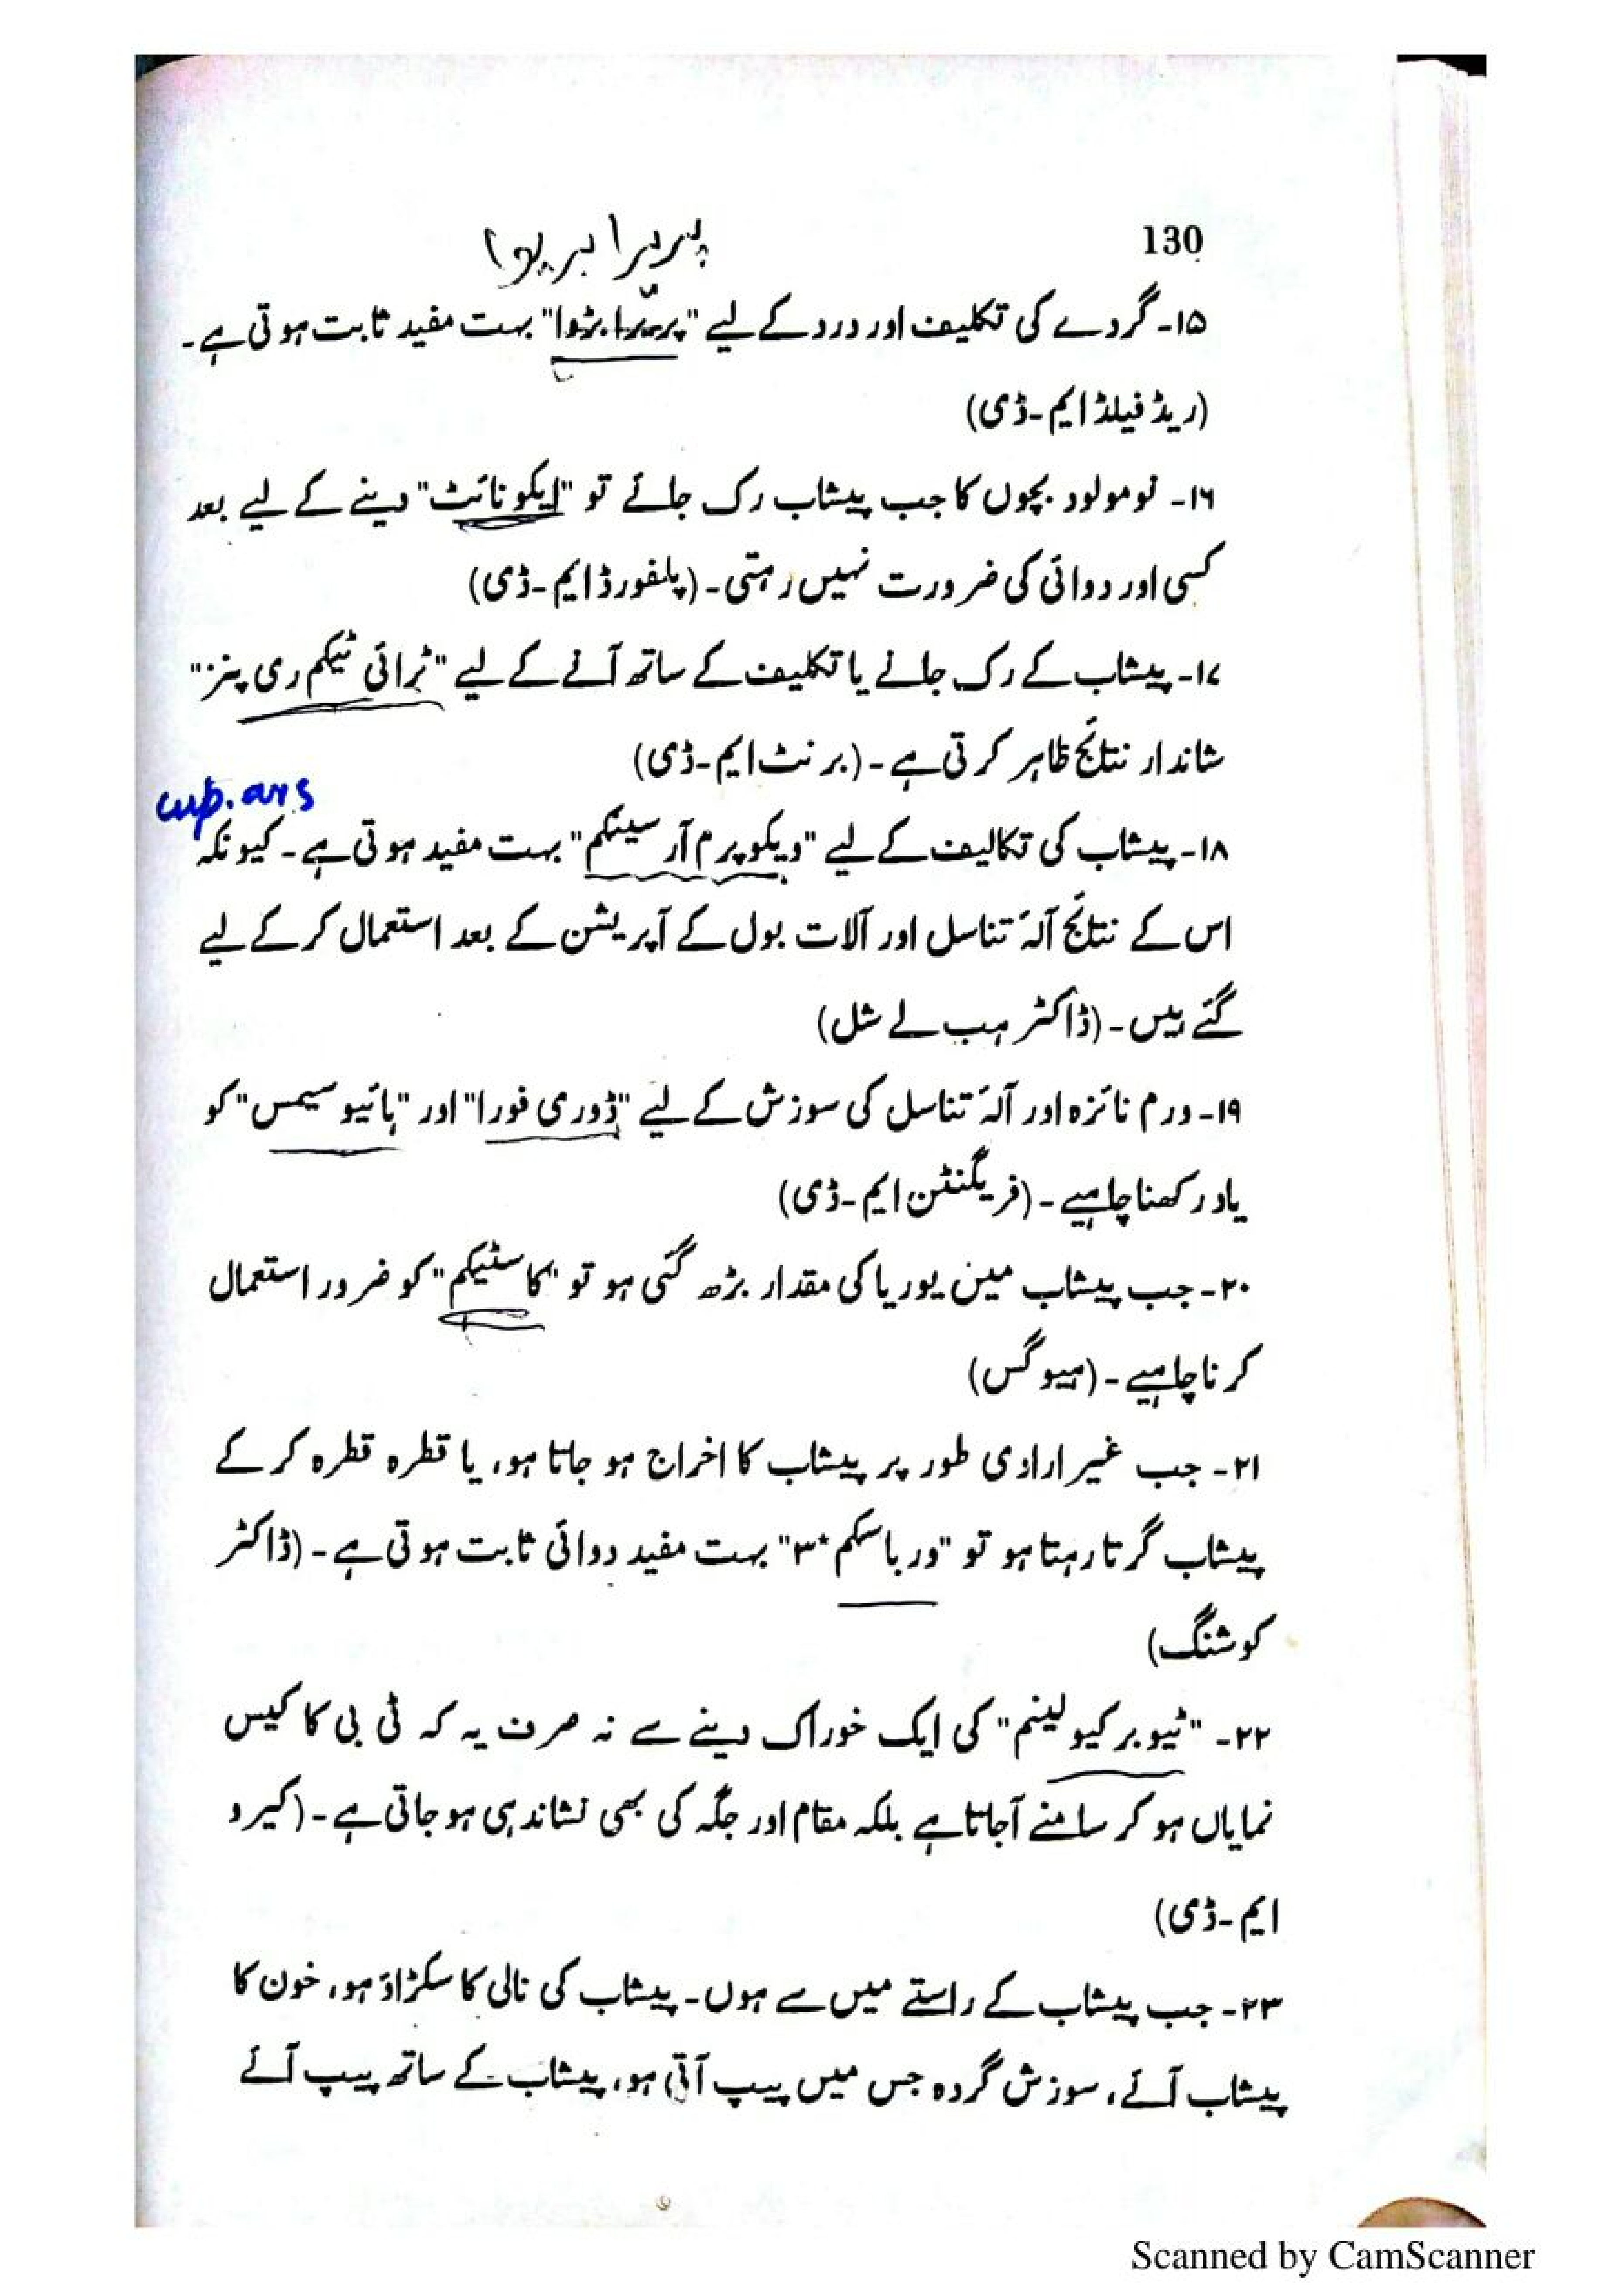 130
پریرا بریوا
۱۵- گردے کی تکلیف اور درد کے لیے "پریرا بڑوا" بہت مفید ثابت ہوتی ہے۔
(ریڈ فیلڈ ایم-ڈی)
۱۶- نومولود بچوں کا جب پیشاب رک جائے تو "ایکونائٹ" دینے کے لیے بعد
کسی اور دوائی کی ضرورت نہیں رہتی۔ (پلفورڈ ایم-ڈی)
۱۷- پیشاب کے رک جانے یا تکلیف کے ساتھ آنے کے لیے "ٹرائی ٹیکم ری پنز"
شاندار نتائج ظاہر کرتی ہے۔ (برنٹ ایم-ڈی)
cup. ars
۱۸- پیشاب کی تکالیف کے لیے "ویکوپرم آر سینکم" بہت مفید ہوتی ہے۔ کیونکہ
اس کے نتائج آلۂ تناسل اور آلات بول کے آپریشن کے بعد استعمال کر کے لیے
گئے ہیں۔ (ڈاکٹر ہب لے شل)
۱۹- ورم نائزہ اور آلۂ تناسل کی سوزش کے لیے "ڈوری فورا" اور "ہائیو سیمس" کو
یاد رکھنا چاہیے۔ (فریگنٹن ایم-ڈی)
۲۰- جب پیشاب میں یوریا کی مقدار بڑھ گئی ہو تو "کاسٹیکم" کو ضرور استعمال
کرنا چاہیے۔ (ہیوگس)
۲۱- جب غیر ارادی طور پر پیشاب کا اخراج ہو جاتا ہو، یا قطرہ قطرہ کر کے
پیشاب گرتا رہتا ہو تو "ورباسکم ۳*" بہت مفید دوائی ثابت ہوتی ہے۔ (ڈاکٹر
کوشنگ)
۲۲- "ٹیوبرکیولینم" کی ایک خوراک دینے سے نہ صرف یہ کہ ٹی بی کا کیس
نمایاں ہو کر سامنے آجاتا ہے بلکہ مقام اور جگہ کی بھی نشاندہی ہو جاتی ہے۔ (کیرو
ایم-ڈی)
۲۳- جب پیشاب کے راستے میں سے ہوں۔ پیشاب کی نالی کا سکڑاؤ ہو، خون کا
پیشاب آئے، سوزش گردہ جس میں پیپ آتی ہو، پیشاب کے ساتھ پیپ آئے
Scanned by CamScanner